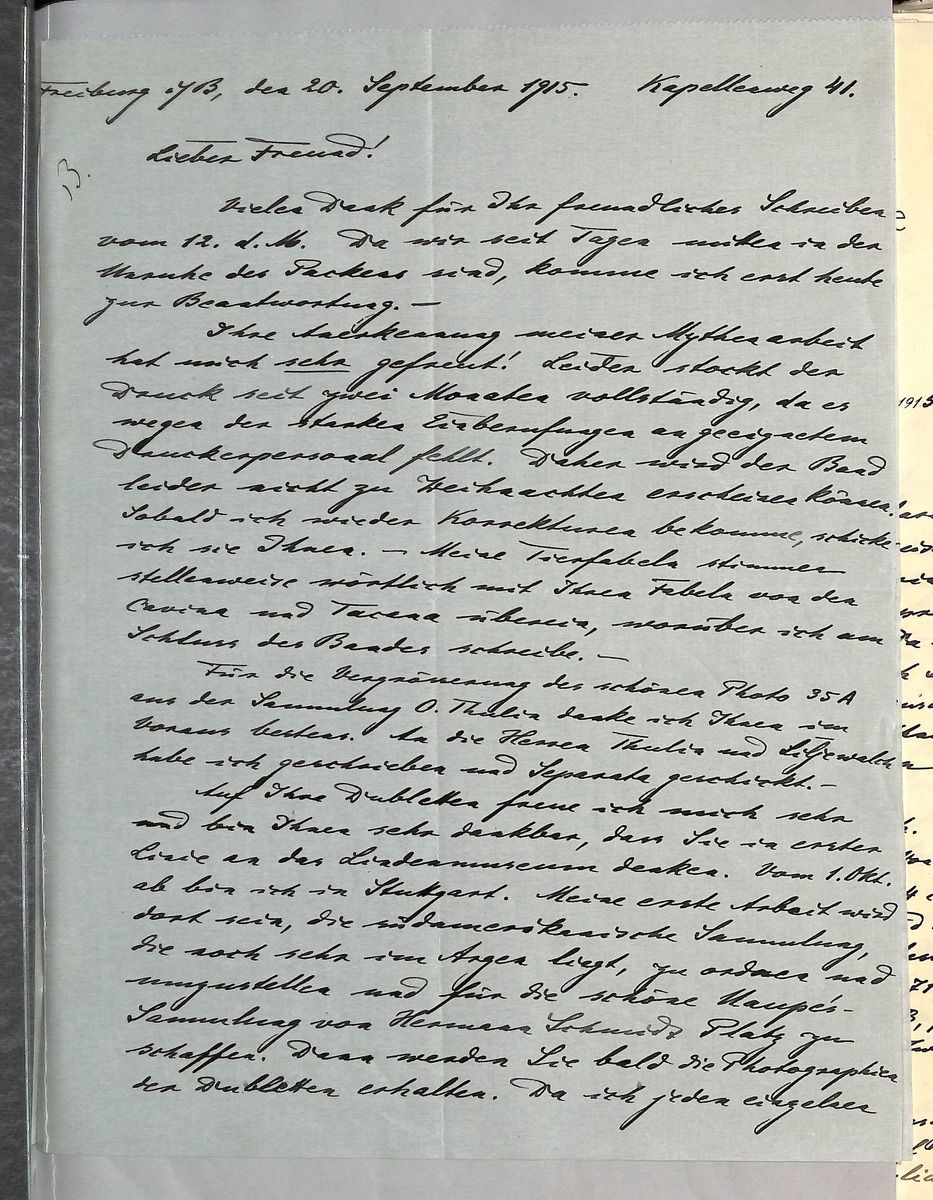 Freiburg i/B, den 20. September 1915. Kapellenweg 41.
Lieber Freund!
13.
Vielen Dank für Ihr freundliches Schreiben
vom 12. d. M. Da wir seit Tagen mitten in der
Unruhe des Packens sind, komme ich erst heute
zur Beantwortung. —
Ihre Anerkennung meiner Mythenarbeit
hat mich sehr gefreut! Leider stockt der
Druck seit zwei Monaten vollständig, da es
wegen der starken Einberufungen an geeignetem
Druckerpersonal fehlt. Daher wird der Band
leider nicht zu Weihnachten erscheinen können.
Sobald ich wieder Korrekturen bekomme, schicke
ich sie Ihnen. — Meine Tierfabeln stimmen
stellenweise wörtlich mit Ihren Fabeln von den
Cavina und Tacana überein, worüber ich am
Schluss des Bandes schreibe. —
Für die Vergrösserung des schönen Photo 35A
aus der Sammlung O. Thulin danke ich Ihnen im
Voraus bestens. An die Herren Thulin und Liljewalch
habe ich geschrieben und Separata geschickt. —
Auf Ihre Dubletten freue ich mich sehr
und bin Ihnen sehr dankbar, dass Sie in erster
Linie an das Lindenmuseum denken. Vom 1. Okt.
ab bin ich in Stuttgart. Meine erste Arbeit wird
dort sein, die südamerikanische Sammlung,
die noch sehr im Argen liegt, zu ordnen und
umzustellen und für die schöne Uaupés-
Sammlung von Hermann Schmidt Platz zu
schaffen. Dann werden Sie bald die Photographien
der Dubletten erhalten. Da ich jeden einzelnen